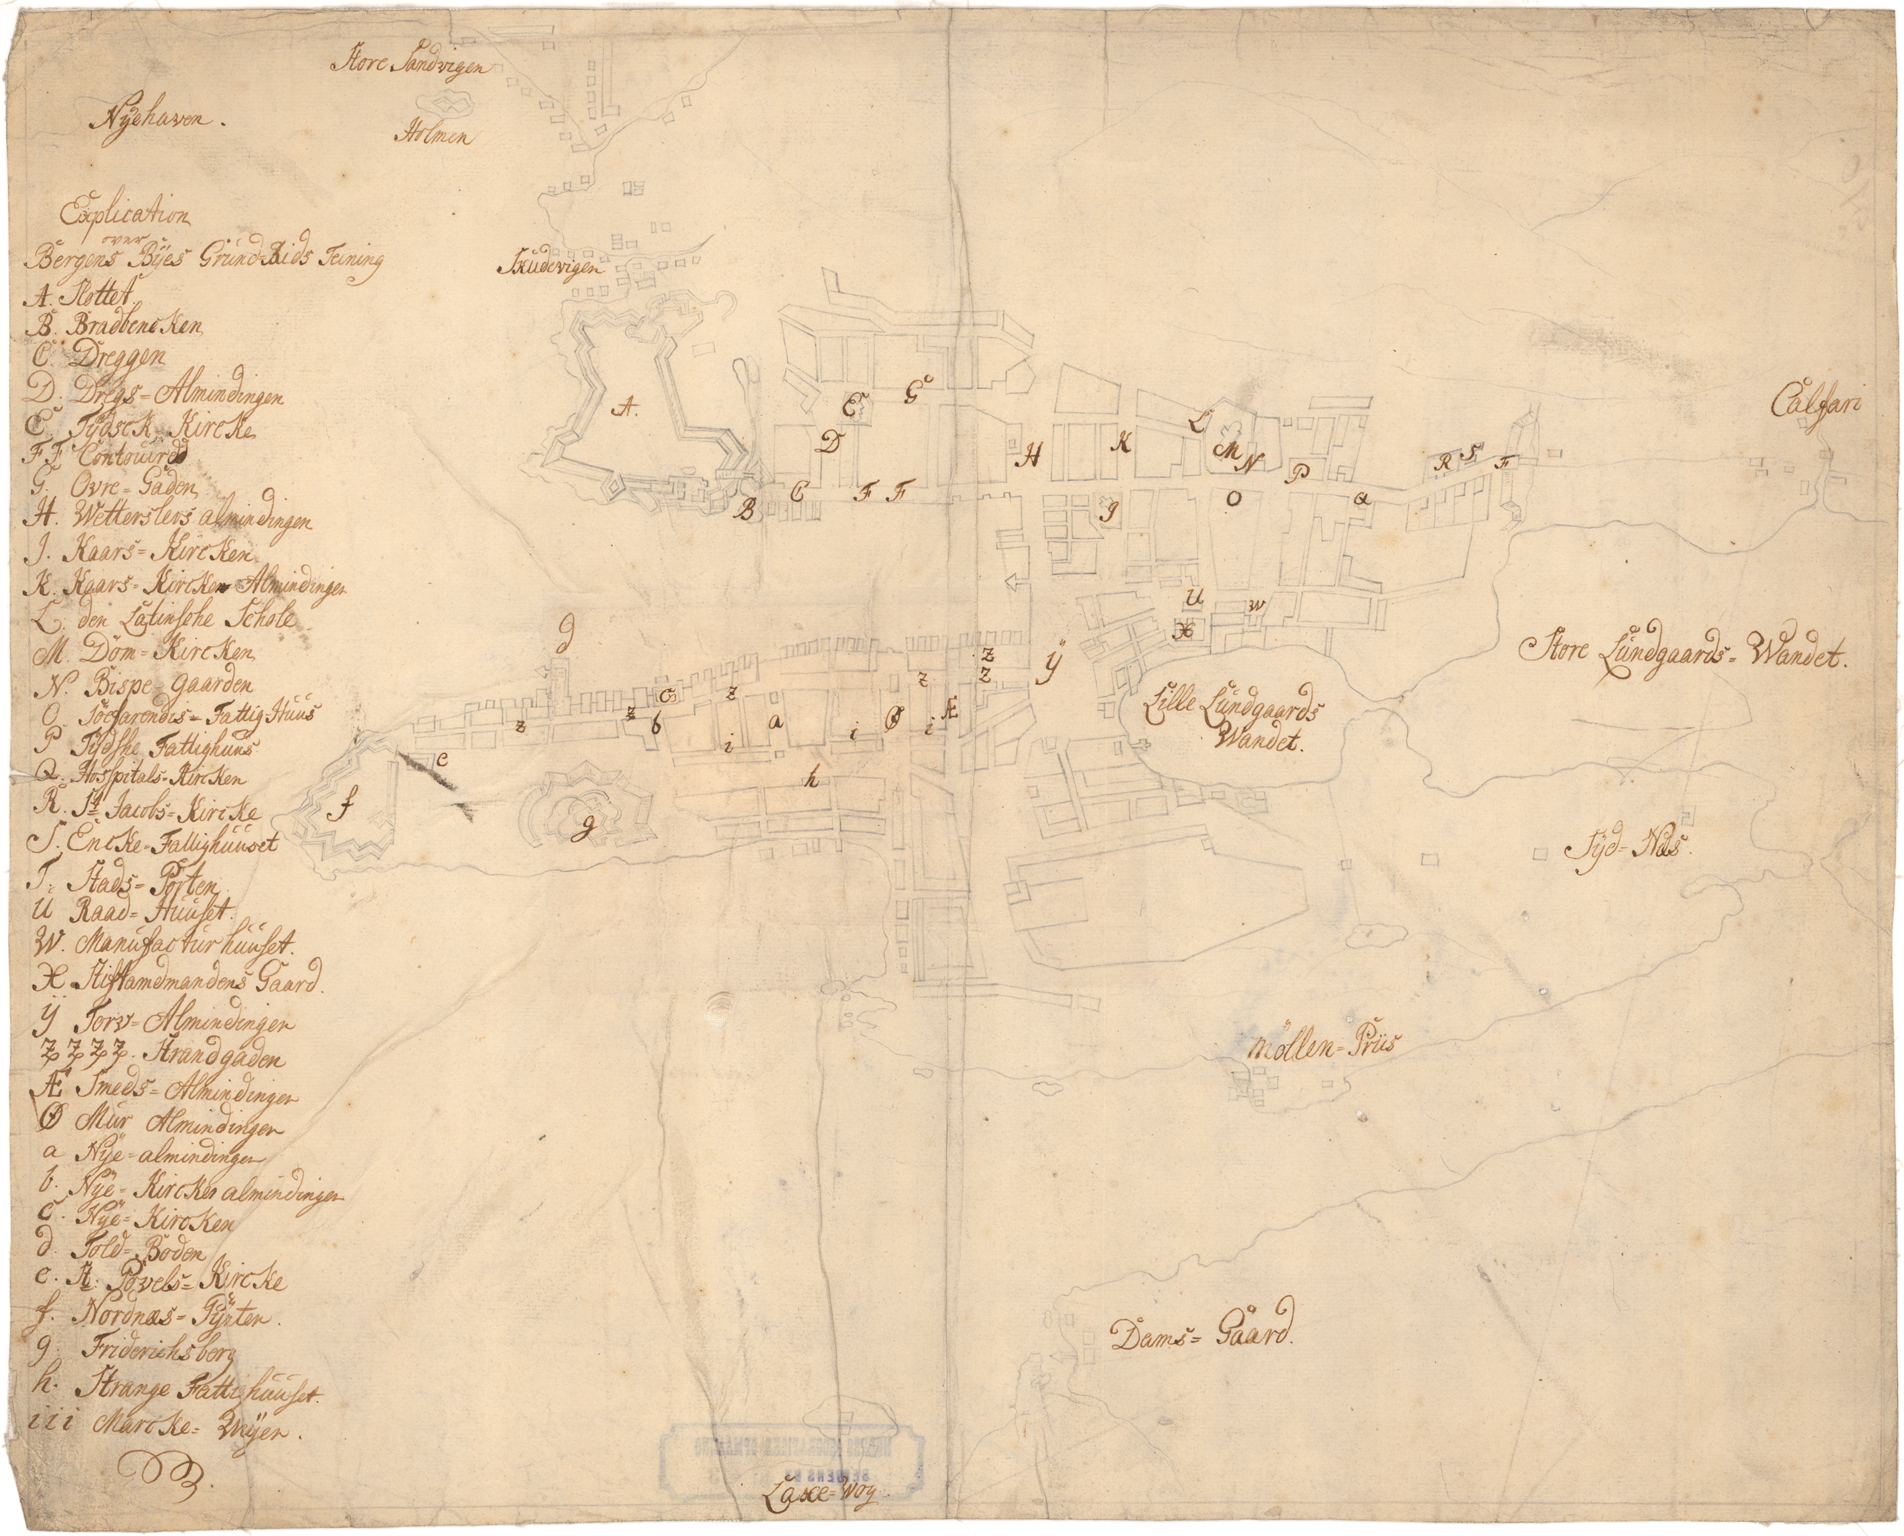 Store Sandvigen
Nÿehaven.
Holmen
Skudevigen
Explication
over
Bergens Bÿes Grund=Rids Teining
A. Slottet
B. Bradbencken
C. Dreggen
D. Dregs=Almindingen
E. Tÿdsck Kircke
F F Contoired
G. Ovre=Gaden
H. Wetterslers almindingen
J. Kaars=Kircken
K. Kaars=Kircken Almindingen
L. den Latinsche Schole
M. Dom=Kircken
N. Bispe gaarden
O. Söefarendis=Fattig Huus
P Tÿdshe Fattighuus
Q. Hospitals=Kircken
R. St Jacobs=Kircke
S. Encke=Fattighuuset
T. Stads=Porten
U Raad=Huuset.
W. Manufacturhuuset.
X Stiftamdmandens Gaard.
ÿ Torv=Almindingen
Z Z Z Z. Strandgaden
Æ Smeds=Almindingen
Ø Mur Almindingen
a Nÿe=almindingen
b. Nÿe=Kircken almindingen
c. Nÿe=Kircken
d. Told=Boden
e. St. Povels=Kircke
f. Nordnæs=Pÿnten.
g. Friderichsberg
h. Strange Fattighuuset.
i i i Marcke=Weÿen.
A.
B
C
D
E
F F
G
H
g
K
L
M
N
O
P
Q
R
S
F
U
W
X
ÿ
z
z
z
z
z
z
Æ
Ø
a
b
c
d
e
f
g
h
i
i
i
Calfari
Store Lundgaards=Wandet.
Lille Lundgaards
Wandet.
Sÿd=Næs.
Möllen=Priis
Dams=Gaard.
Laxe=Wog